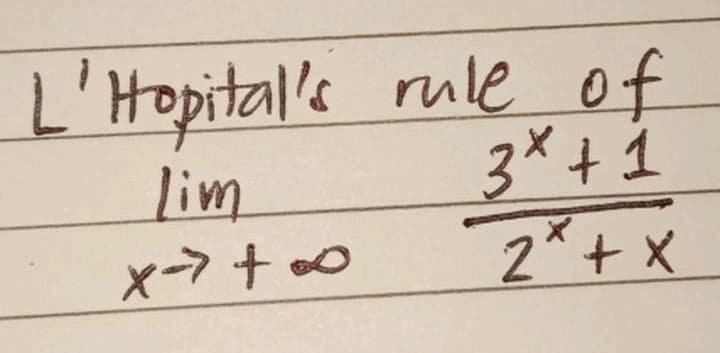 L'Hopital's rule of
lim 3^x + 1
x→ +∞ 2^x + x